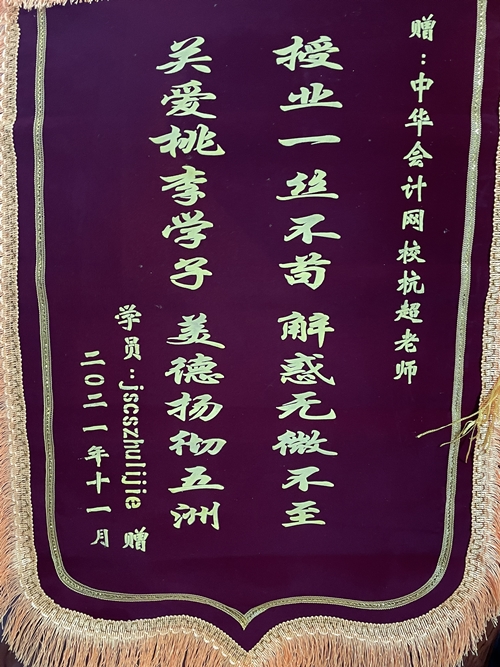 赠：中华会计网校杭超老师
授业一丝不苟 解惑无微不至
关爱桃李学子 美德扬彻五洲
学员：jscszhulijie 赠
二〇二一年十一月